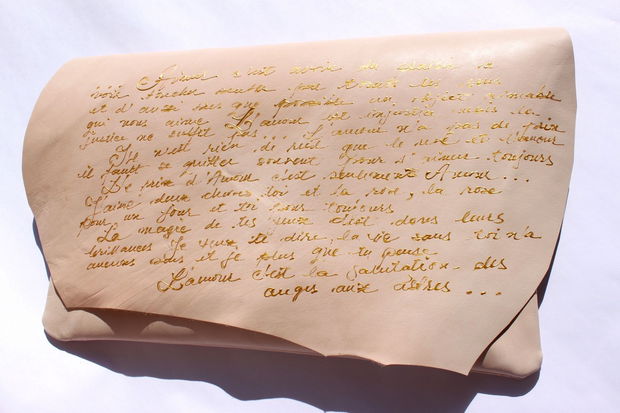 Aimer c'est avoir du plaisir à
voir toucher sentir par tous les sens
et d'aussi près que possible un object aimable
qui nous aime L'amour est injuste mais la
justice ne suffit pas... L'amour n'a pas de prix
Il n'est rien de réel que le rêve et l'amour
il faut se quitter souvent pour s'aimer toujours
Le prix d'Amour c'est seulement Amour...
J'aime deux choses toi et la rose, la rose
pour un jour et toi pour toujours
La magie de tes yeux dans leurs
brillances Je veux te dire, la vie sans toi n'a
aucuns sens et je plus que tu pense
L'amour c'est la salutation des
anges aux astres ...